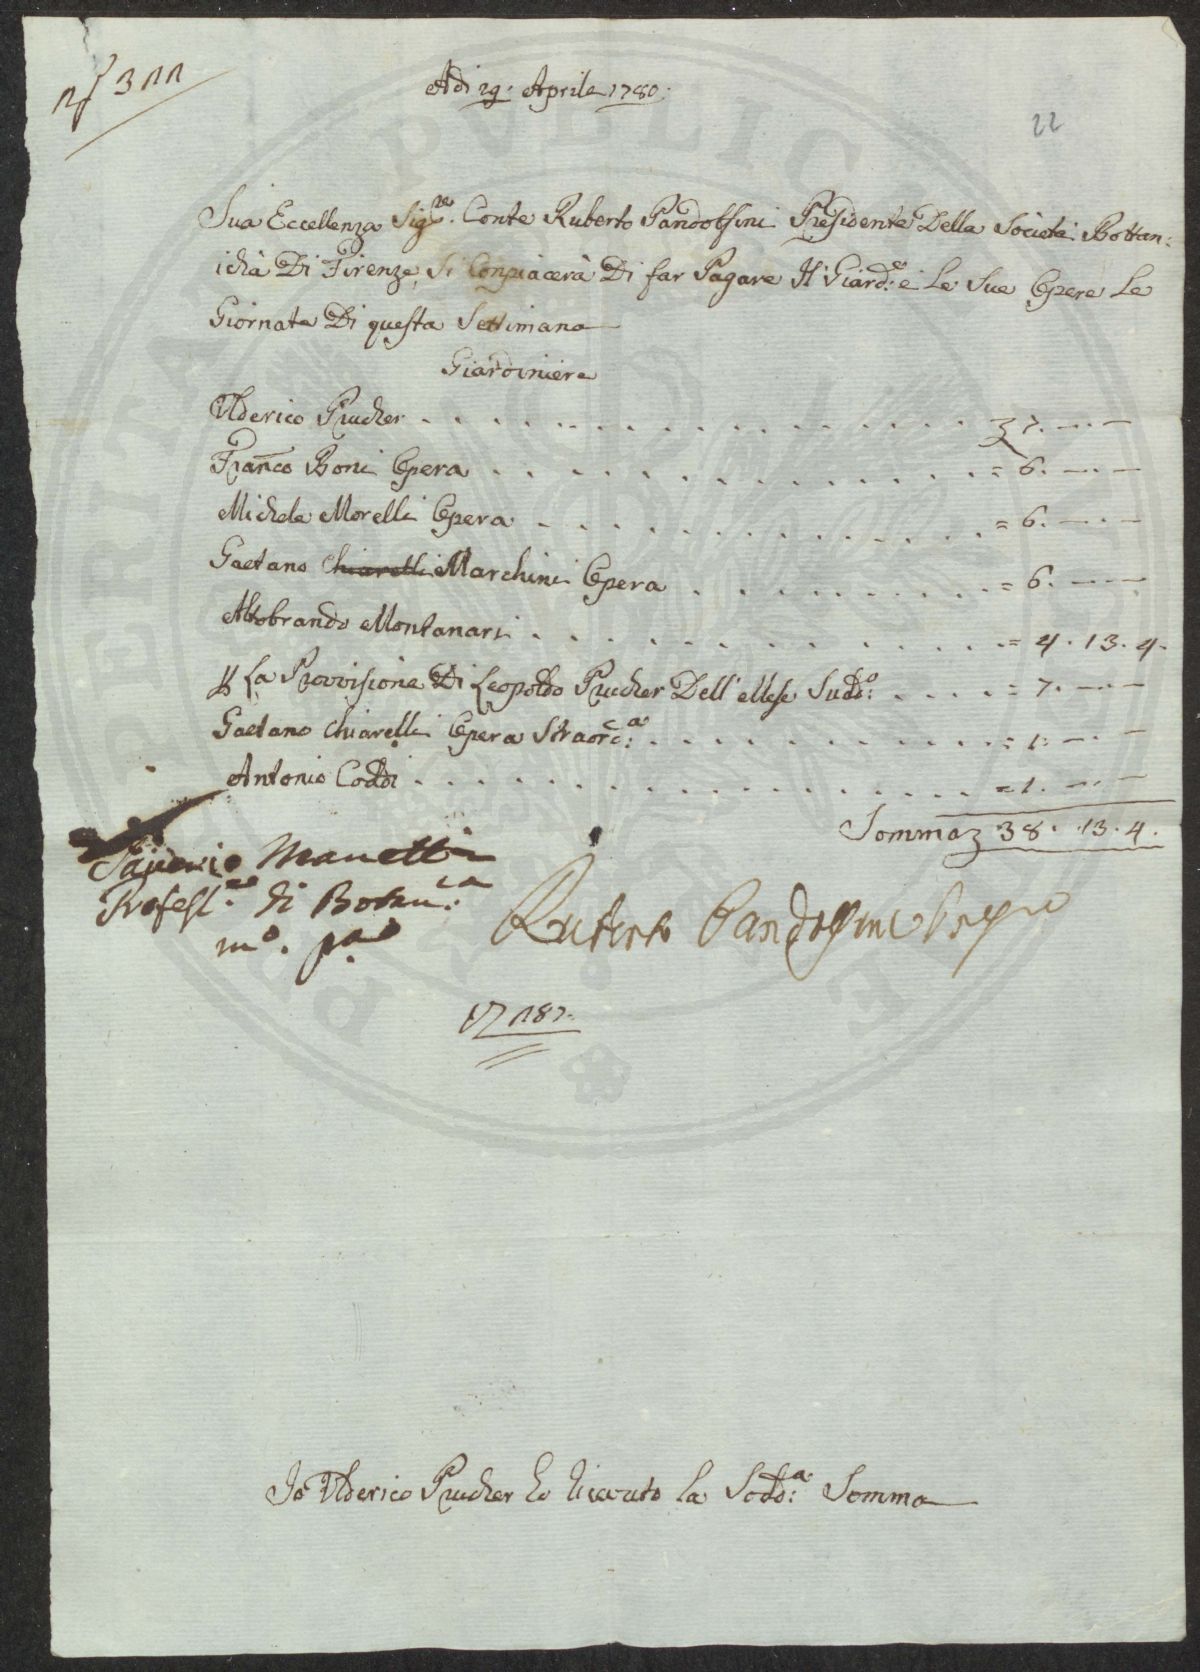 N 311
Adi 29. Aprile 1780.
22
Sua Eccellenza Sig.re Conte Ruberto Pandolfini Presidente Della Società Bottan:
ichà Di Firenze, Si Conpiacerà Di far Pagare Il Giard.e e Le Sue Opere Le
Giornate Di questa Settimana
Giardiniere
Ulderico Prucher . . . . . . . . . . . . . . . . 7. — . —
Franco Boni Opera . . . . . . . . . . . . = 6. — . —
Michele Morelli Opera . . . . . . . . . . . = 6. — . —
Gaetano Chiarelli Marchini Opera . . . . . . . . = 6. — —
Altobrando Montanari . . . . . . . . . . . . = 4 . 13 . 4.
P La Provisione Di Leopoldo Prucher Dell' Mese Sudd.o: . . . . = 7. — . —
Gaetano Chiarelli Opera Straorc.a: . . . . . . . . . . = 1. — . —
Antonio Coddi . . . . . . . . . . . . . . . = 1. — . —
Somma 38 . 13 . 4 .
Saverio Manetti
Profess.re di Botan.ca
m.o p.a
Ruberto Pandolfini
187.
Io Ulderico Prucher ho riceuto La Sodd.a: Somma
PUBLICAE